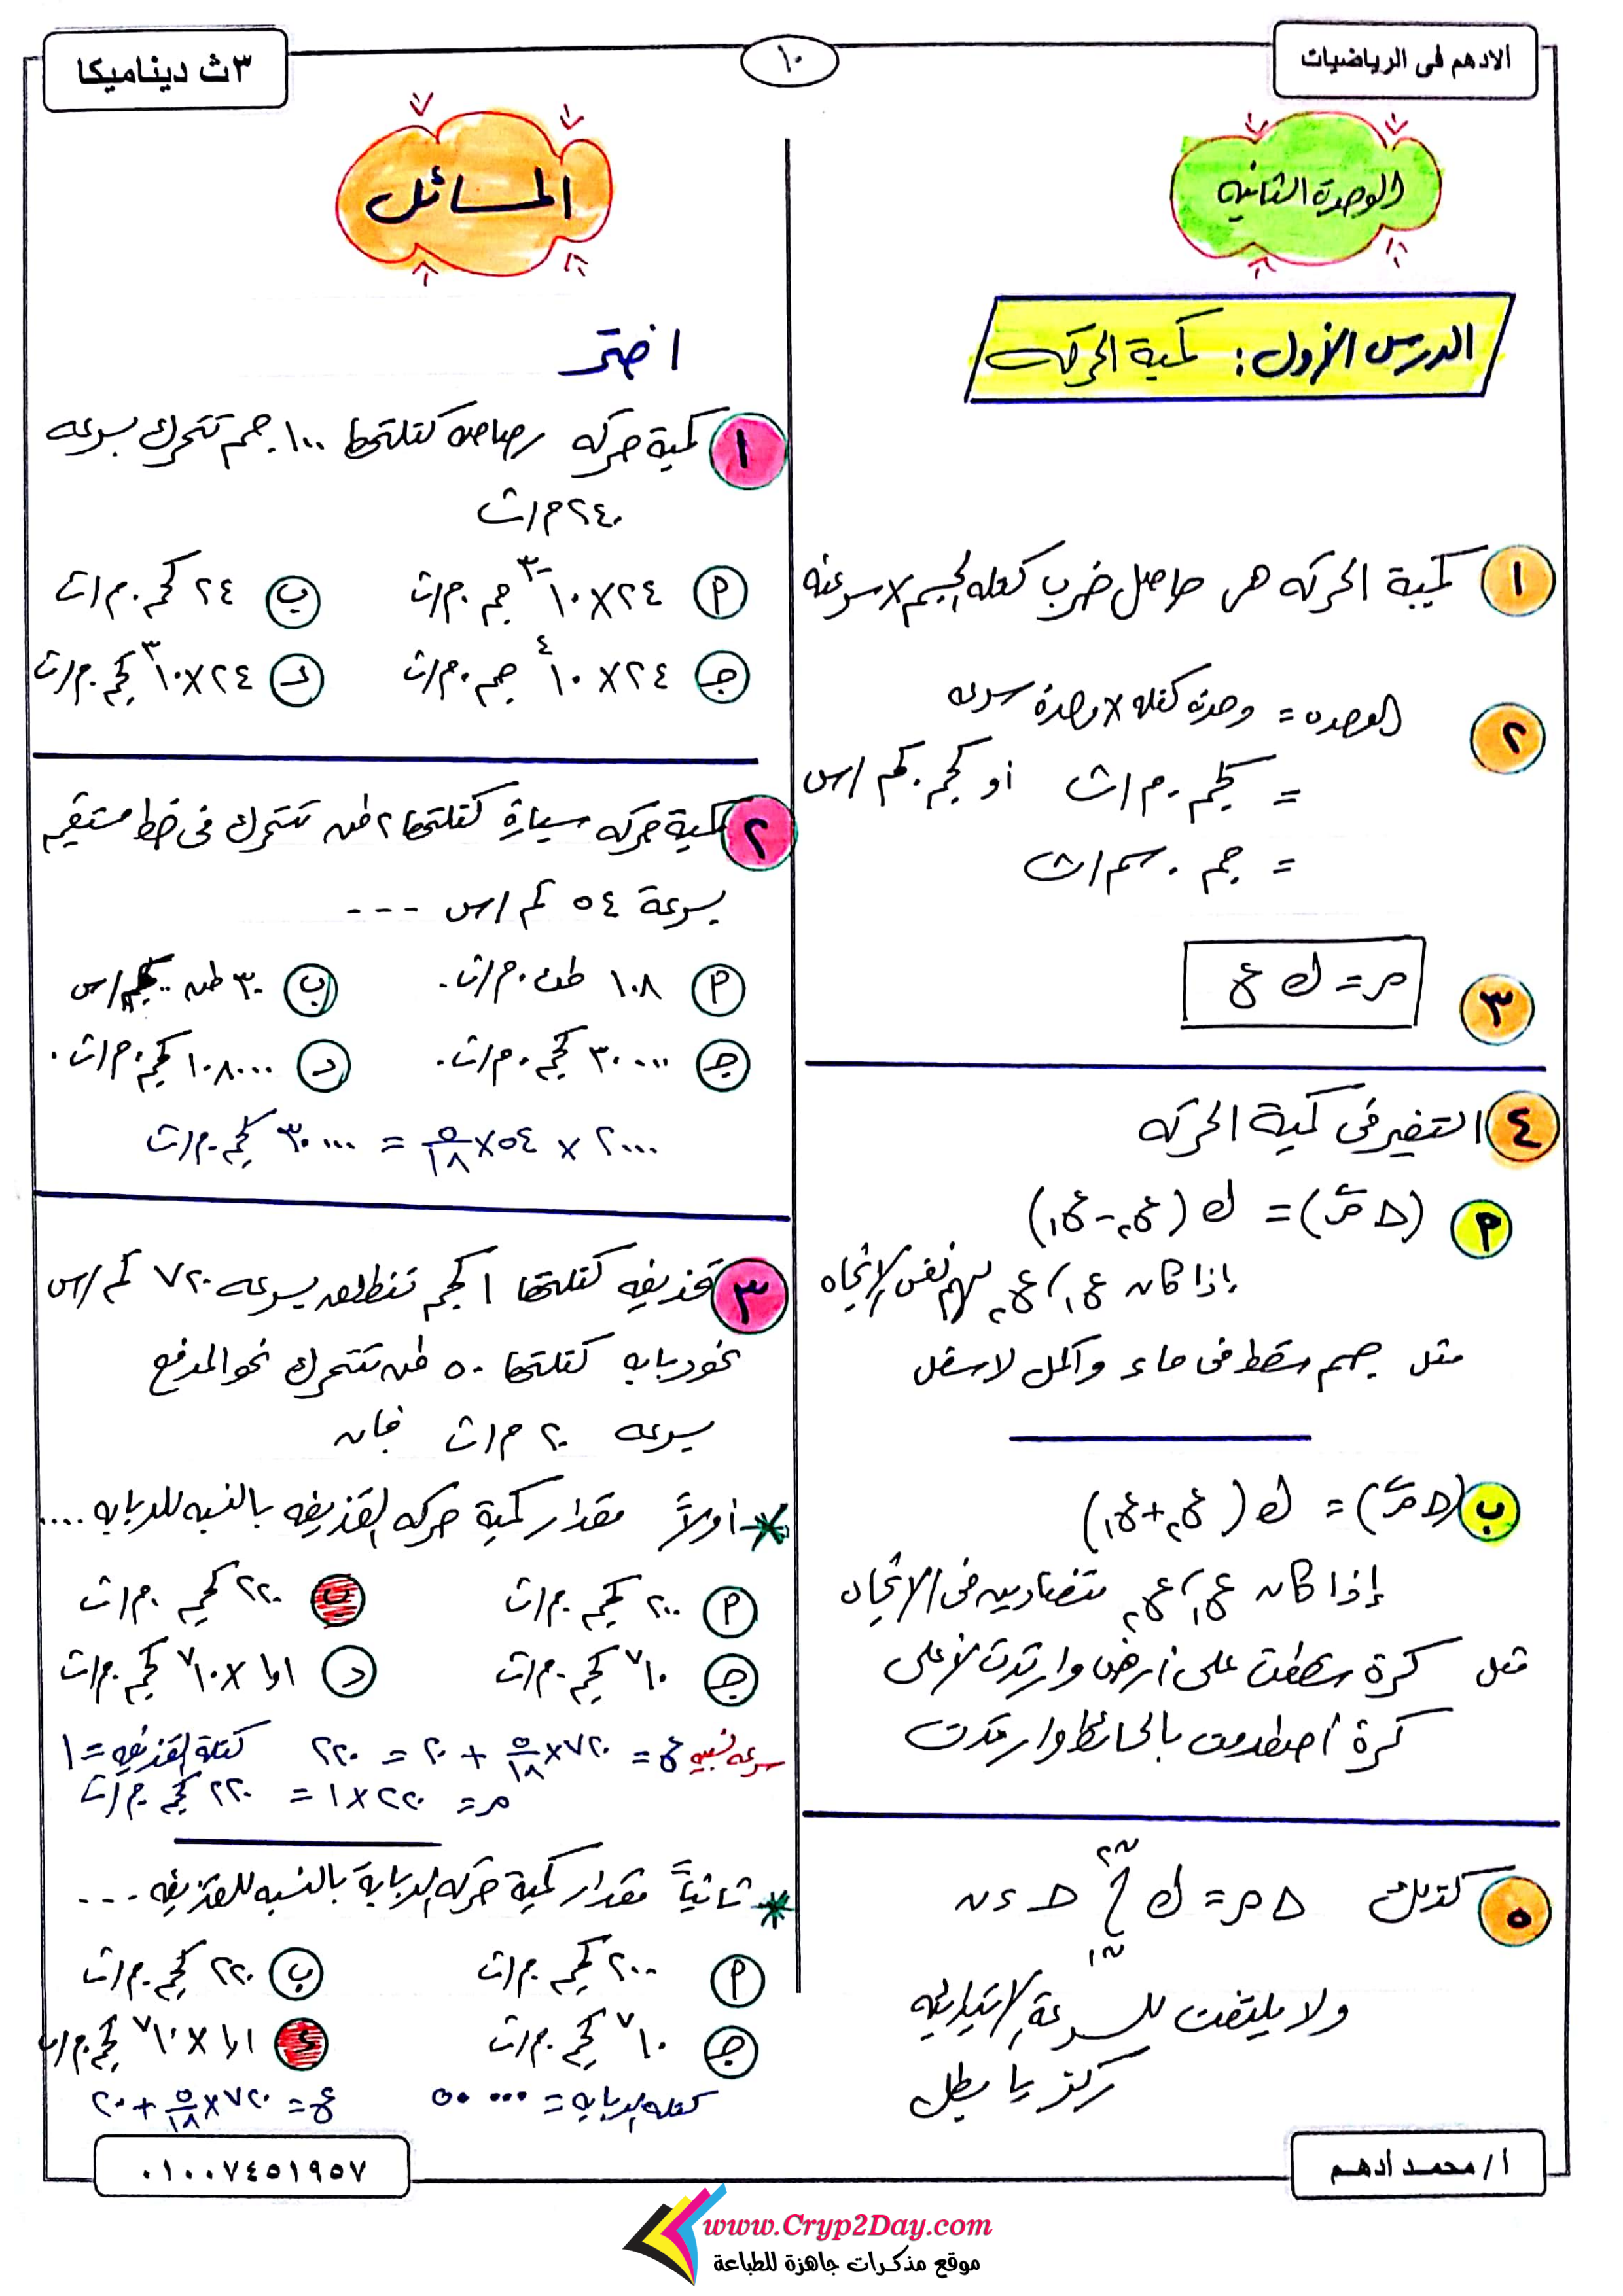 الادهم فى الرياضيات
١٠
٣ث ديناميكا
الوحدة الثانيه
الدرس الأول: كمية الحركه
١ كمية الحركه هى حاصل ضرب كتله الجسم × سرعته
٢ الوحده = وحدة كتله × وحدة سرعه
= كجم . م/ث أو كجم . كم/س
= جم . سم/ث
٣ م = ك ع
٤ التغير فى كمية الحركه
أ (Δ م) = ك (ع٢ - ع١)
إذا كان ع١، ع٢ لهم نفس الإتجاه
مثل جسم سقط فى ماء وأكمل لاسفل
ب (Δ م) = ك (ع٢ + ع١)
إذا كان ع١، ع٢ متضادين فى الاتجاه
مثل كرة سقطت على أرض وارتدت لأعلى
كرة أصطدمت بالحائط وارتدت
٥ كذلك Δ م = ك ∫ ن١ ن٢ حـ ءن
ولا يلتفت للسرعة الإبتدائيه
ركز يا بطل
المسائل
اختر
١ كمية حركه رصاصه كتلتها ١٠٠ جم تتحرك بسرعه
٢٤٠ م/ث
أ ٢٤ × ١٠⁻³ جم . م/ث ب ٢٤ كجم . م/ث
جـ ٢٤ × ١٠⁴ جم . م/ث د ٢٤ × ١٠³ كجم . م/ث
٢ كمية حركه سيارة كتلتها ٢ طن تتحرك فى خط مستقيم
بسرعة ٥٤ كم/س ---
أ ١٠٨ طن . م/ث . ب ٣٠ طن . كم/س
جـ ٣٠٠٠٠ كجم . م/ث . د ١٠٨٠٠٠ كجم . م/ث .
٢٠٠٠ × ٥٤ × ٥/١٨ = ٣٠٠٠٠ كجم . م/ث
٣ قذيفه كتلتها ١ كجم تنطلق بسرعه ٧٢٠ كم/س
نحو دبابه كتلتها ٥٠ طن تتحرك نحو المدفع
بسرعه ٢٠ م/ث فإن
* أولاً مقدار كمية حركه القذيفه بالنسبه للدبابه ....
أ ٢٠٠ كجم . م/ث ب ٢٢٠ كجم . م/ث
جـ ١٠⁷ كجم . م/ث د ١,١ × ١٠⁷ كجم . م/ث
سرعه نسبيه ع = ٧٢٠ × ٥/١٨ + ٢٠ = ٢٢٠ كتلة القذيفه = ١
م = ٢٢٠ × ١ = ٢٢٠ كجم . م/ث
* ثانياً مقدار كمية حركه الدبابة بالنسبه للقذيفه ---
أ ٢٠٠ كجم . م/ث ب ٢٢٠ كجم . م/ث
جـ ١٠⁷ كجم . م/ث د ١,١ × ١٠⁷ كجم . م/ث
كتله الدبابه = ٥٠٠٠٠ ع = ٧٢٠ × ٥/١٨ + ٢٠
أ/محمد ادهم
٠١٠٠٧٤٥١٩٥٧
www.Cryp2Day.com
موقع مذكرات جاهزة للطباعة